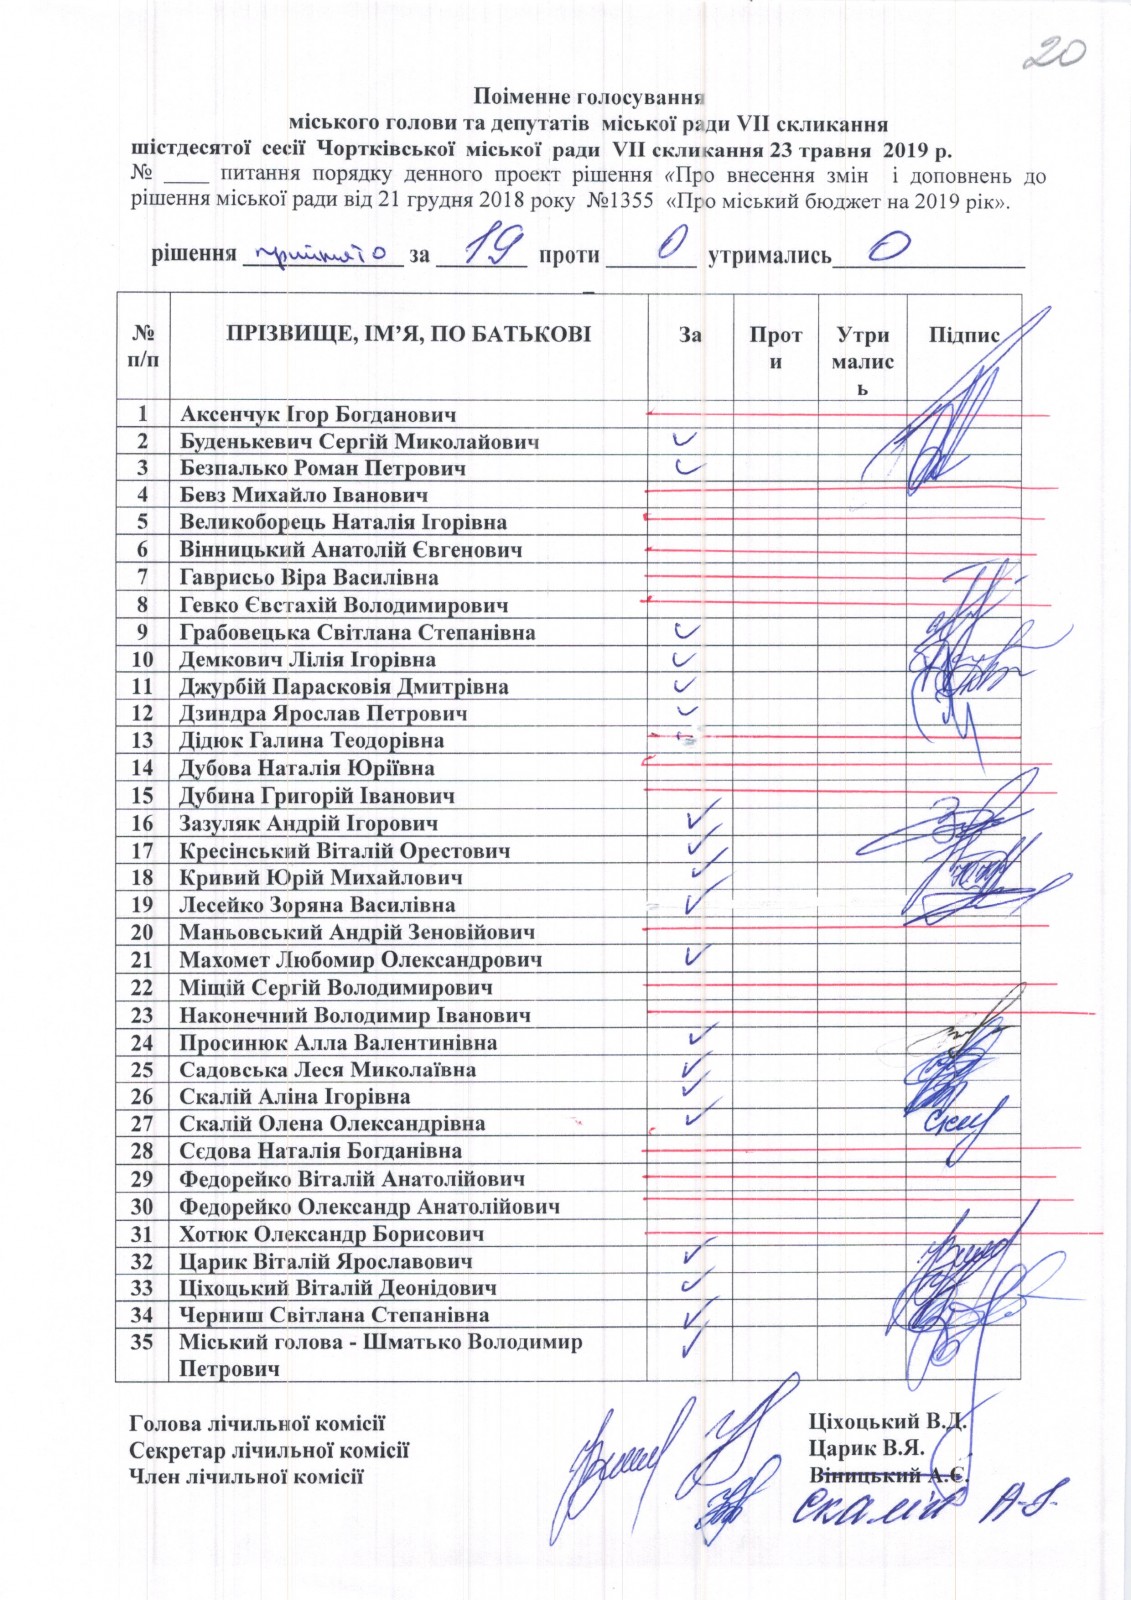 20
Поіменне голосування
міського голови та депутатів міської ради VII скликання
шістдесятої сесії Чортківської міської ради VII скликання 23 травня 2019 р.
№ ____ питання порядку денного проект рішення «Про внесення змін і доповнень до
рішення міської ради від 21 грудня 2018 року №1355 «Про міський бюджет на 2019 рік».
рішення прийнято за 19 проти 0 утримались 0
№ п/п ПРІЗВИЩЕ, ІМ’Я, ПО БАТЬКОВІ За Проти Утрималис ь Підпис
1 Аксенчук Ігор Богданович
2 Буденькевич Сергій Миколайович ✓
3 Безпалько Роман Петрович ✓
4 Бевз Михайло Іванович
5 Великоборець Наталія Ігорівна
6 Вінницький Анатолій Євгенович
7 Гаврисьо Віра Василівна
8 Гевко Євстахій Володимирович
9 Грабовецька Світлана Степанівна ✓
10 Демкович Лілія Ігорівна ✓
11 Джурбій Парасковія Дмитрівна ✓
12 Дзиндра Ярослав Петрович ✓
13 Дідюк Галина Теодорівна
14 Дубова Наталія Юріївна
15 Дубина Григорій Іванович
16 Зазуляк Андрій Ігорович ✓
17 Кресінський Віталій Орестович ✓
18 Кривий Юрій Михайлович ✓
19 Лесейко Зоряна Василівна ✓
20 Маньовський Андрій Зеновійович
21 Махомет Любомир Олександрович ✓
22 Міщій Сергій Володимирович
23 Наконечний Володимир Іванович
24 Просинюк Алла Валентинівна ✓
25 Садовська Леся Миколаївна ✓
26 Скалій Аліна Ігорівна ✓
27 Скалій Олена Олександрівна ✓
28 Сєдова Наталія Богданівна
29 Федорейко Віталій Анатолійович
30 Федорейко Олександр Анатолійович
31 Хотюк Олександр Борисович
32 Царик Віталій Ярославович ✓
33 Ціхоцький Віталій Деонідович ✓
34 Черниш Світлана Степанівна ✓
35 Міський голова - Шматько Володимир ✓
Петрович
Голова лічильної комісії Ціхоцький В.Д.
Секретар лічильної комісії Царик В.Я.
Член лічильної комісії Віницький А.Є.
Скалій А.І.